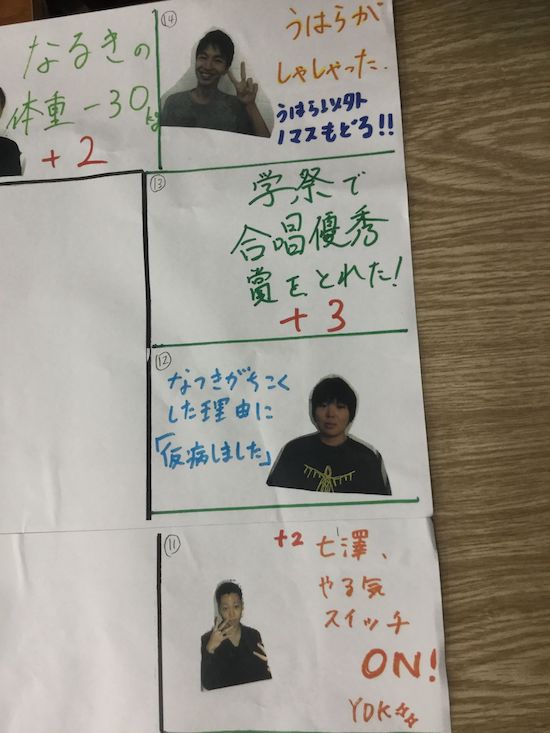 なるきの
体重-30kg
+2
⑭
うはらが
しゃしゃった.
うはら以外
1マスもどる!!
⑬
学祭で
合唱優秀
賞をとれた!
+3
⑫
なつきがちこく
した理由に
「仮病しました」
⑪
+2 七澤、
やる気
スイッチ
ON!
YDK☆☆